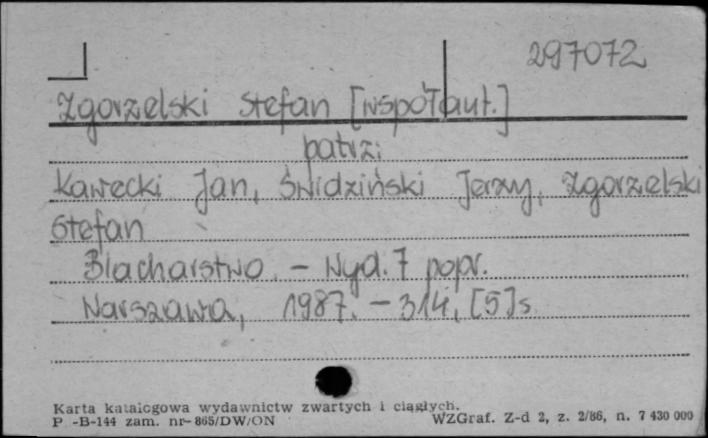 297072
Zgorzelski Stefan [współaut.]
patrz:
Kawecki Jan, Świdziński Jerzy, Zgorzelski
Stefan
Blacharstwo. - Wyd. 7 popr.
Warszawa, 1987. - 314, [5] s.
Karta katalogowa wydawnictw zwartych i ciągłych.
P -B-144 zam. nr- 865/DW/ON WZGraf. Z-d 2, z. 2/86, n. 7 430 000